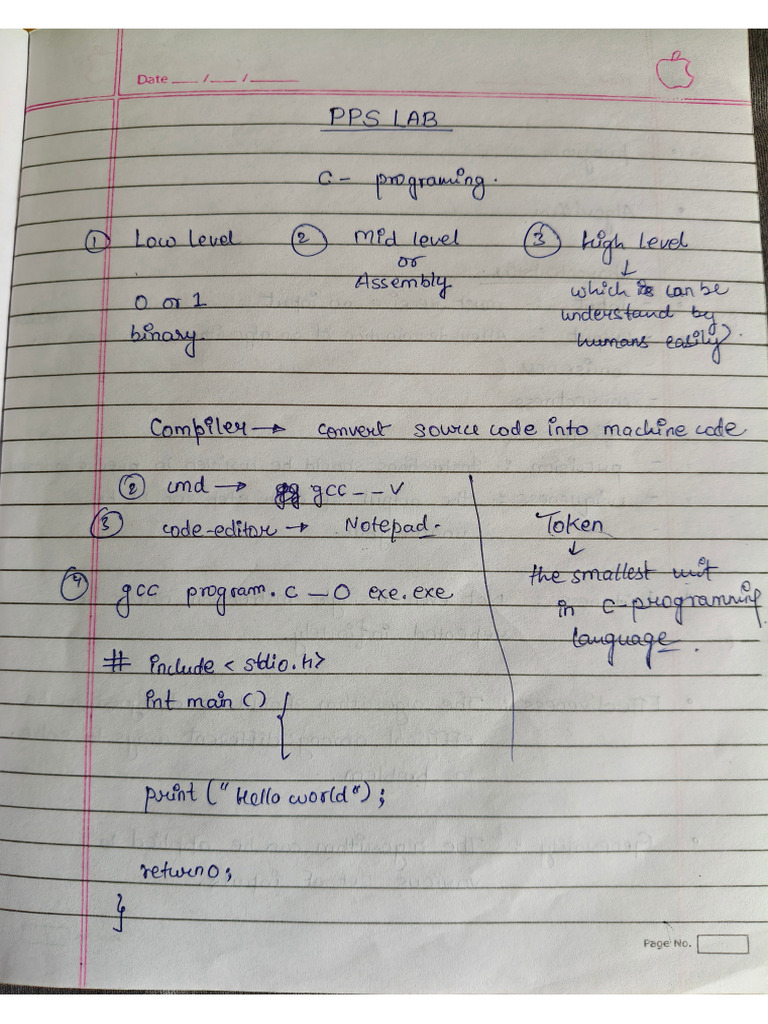 Date ___/___/_____
PPS LAB
C - programing.
① Low Level ② Mid level ③ High Level
or
Assembly
0 or 1
binary.
↓
which is can be
understand by
humans easily.
Compiler → convert source code into machine code
② cmd → gcc -- v
③ code-editor → Notepad.
④ gcc program.c -O exe.exe
# include < stdio.h>
int main () {
print ("Hello world");
return 0;
}
Token
↓
the smallest unit
in C-programming
language.
Page No.